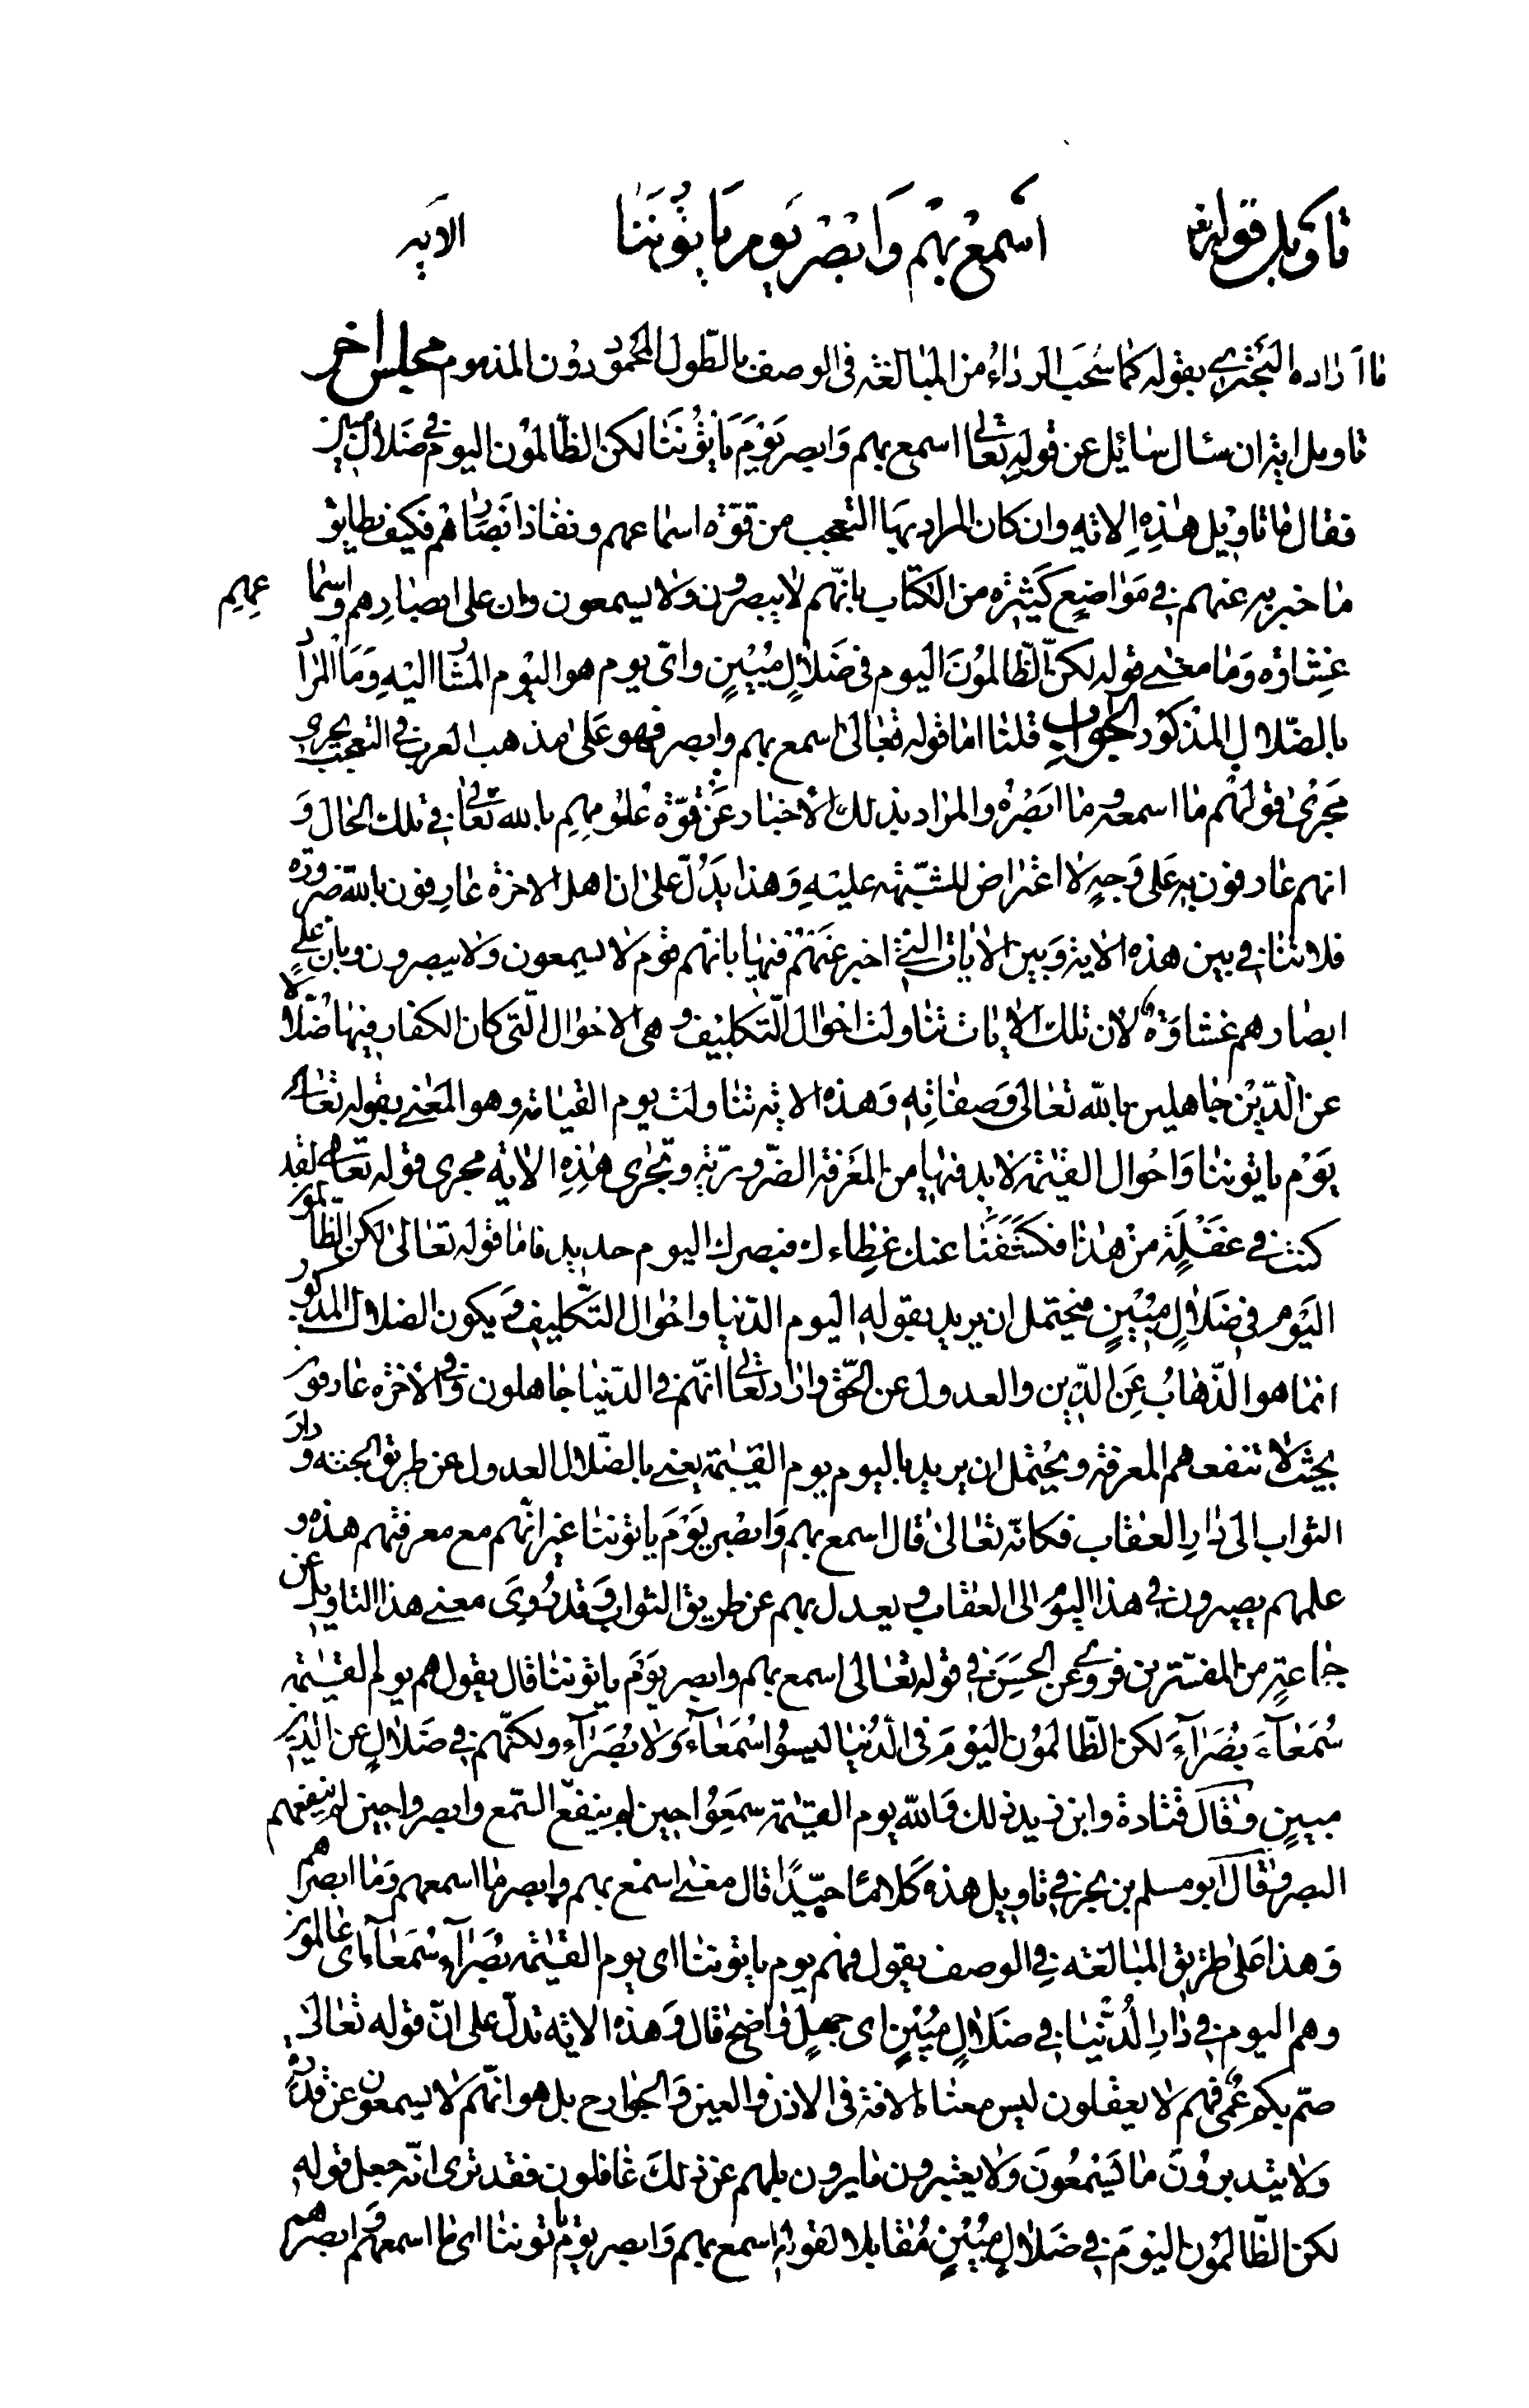 تاويل قوله تع اسمع بهم وابصر يوم ياتوننا الايه
ما اراده البحتري بقوله كما سحب الرداء من المبالغة فى الوصف بالطول المحمود دون المذموم مجلس اخر
تاويل اية ان سئال سائل عن قوله تعالى اسمع بهم وَابصر يَوْمَ يَاتُونَنا لكن الظالمون اليوم فى ضلال مبين
فقال ما تاويل هذهِ الاية وان كان المراد بهَا التعجب من قوّة اسماعهم ونفاذ ابصارهم فكيف يطابق
ما خبر به عنهم فى مَواضع كثيرة من الكتاب بانّهم لا يبصرون ولا يسمعون وان على ابصارِهم واسماعهِم
غِشاوة وَما معنى قوله لكن الظالمُونَ اليوم فى ضَلالٍ مُبينٍ واىّ يوم هو اليوم المشار اليهِ وَمَا المراد
بالضّلال المذكور الجواب قلنا اما قوله تعَالىٰ اسمع بهم وابصر فهو عَلىٰ مذهب العرب فى التعجب يجرى
مَجرىٰ قولهم ما اسمعه وما ابصَرُه والمراد بذلك الأخبار عَن قوّة عُلومهِم بالله تعالى فى تلك الحال وَ
انهم عارفون به عَلى وَجهٍ لا اعتراض للشبهة عليهِ وَهذا يَدُلّ علىٰ ان اهل الاخرة عارِفون بالله ضرورة
فلا تنافى بين هذه الاية وَبين الاٰيات التى اخبر عَنهم فيها بانهم قوم لا يسمعون ولا يبصرون وبان على
ابصارهم غشاوَة لان تلك الاٰيات تناولت احوال التكليف وهى الاحوال التى كان الكفار فيها ضُلّالا
عن الدّين جاهلين بالله تعالى وَصفاتِه وَهذه الاية تناولت يوم القيامة وهو المعنى بقوله تعالى
يَوْم ياتوننا وَاحُوال القيٰمة لا بد فيها من المعرفة الضّروريّة وتجرى هذِهِ الاية مجرى قوله تعالى لقد
كنت فى غفْلَةٍ منْ هٰذا فكشَفنا عنك غطِاءك فبصرك اليوم حديد فاما قوله تعالىٰ لكن الظالمون
اليَوم فى ضَلالٍ مُبينٍ فيحتمل ان يريد بقوله اليوم الدّنيا واحُوال التكليف وَيكون الضلال المذكور
انما هو الذّهابُ عَن الدّين والعدول عن الحّق واراد تعالى انّهم فى الدّنيا جاهلون وفى الأخرة عارفون
بحيث لا تنفعهم المعرفة ويحْتمل ان يريد باليوم يوم القيٰمة يعنى بالضّلال العدول عن طريق الجنّة ودارَ
الثواب الى دارِ العقاب فكانّه تعَالىٰ قال اسمع بهم وَابصْر يَوْمَ ياتوننا غير انّهم مع معرفتهم هذه و
علمهم يصيرون فى هذا اليوم الى العقاب ويعدل بهم عن طريق الثواب وَقد رُوِىَ معنى هذا التاويل عن
جماعةٍ من المفسّرين فروىَ عن الحسَن فى قوله تعالى اسمع بهم وابصر يَوْمَ ياتوننا قال يقول هم يوم القيٰمة
سُمَعآءَ بُصَرَآءَ لكن الظّالمُون اليَوْمَ فى الدُنيا ليسُوا سُمَعَآءَ وَلا بُصَرَآءَ ولكنّهم فى ضَلالٍ عن الدين
مبينٍ وَقالَ قتادة وابن زيد ذلك وَالله يوم القيٰمة سمَعِوُا حين لم ينفع السّمع وابصروا حين لم ينفعهم
البصر وَقالَ ابو مسلم بن بحر فى تاويل هذه كَلامًا جيّدًا قال معنى اسمع بهم وابصر ما اسمعهم وَما ابصرهم
وَهذا عَلىٰ طريق المبالغة فى الوصف يقول فهم يوم ياتوننا اى يوم القيٰمة بُصَرَآء سُمَعَآء اى عالمون
وهم اليوم فى دارِ الدُّنيا فى ضَلالٍ مُبينٍ اى جهلٍ واضح قال وَهذه الاية تدلّ على انّ قوله تعالىٰ
صمّ بكم عُمى فهم لا يعقلون ليس معناه الافة فى الاذن وَالعين وَالجوارح بل هو انّهم لا يسمعون عن قدرة
ولا يتدبروُنَ ما يَسْمعُونَ وَلا يعتبرون ما يرون بل هم عن ذلكَ غافلون فقد ترى انّه جعل قوله
لكن الظّالمُون اليَوْمَ فى ضَلالٍ مبُينٍ مُقابلا لقوله اسمع بهم وَابصر يوم ياتوننا اى ما اسمعهم وابصرهم